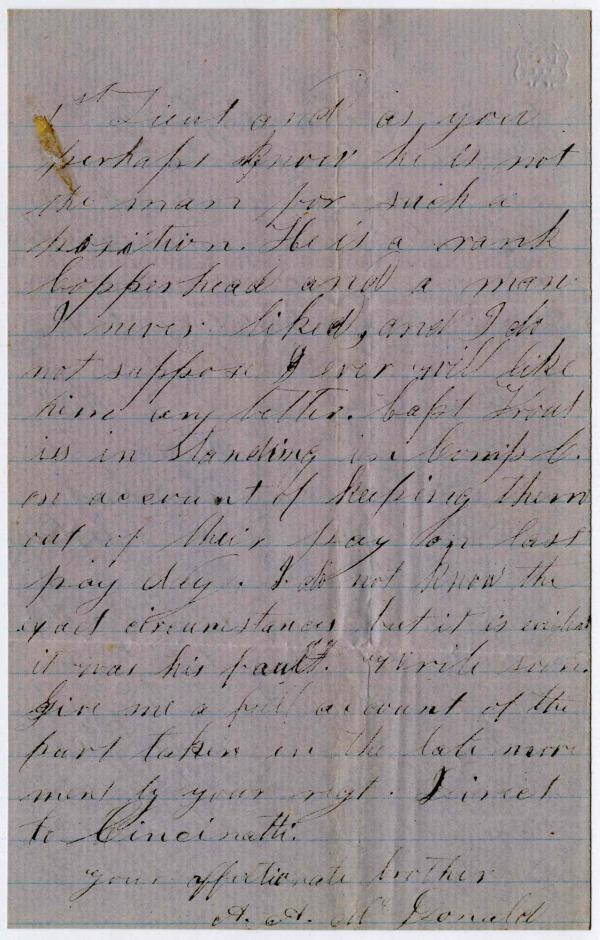 1st Lieut and as you
perhaps know he is not
the man for such a
position. He is a rank
Copperhead and a man
I never liked, and I do
not suppose I ever will like
him any better. Capt Trout
is in standing in Comp C.
on account of keeping them
out of their pay on last
pay day. I do not know the
exact circumstances but it is evident
it was his fault. Write soon.
Give me a full account of the
part taken in the late move
ment by your regt. Direct
to Cincinatti.
your affectionate brother
A. A. Mc Donald